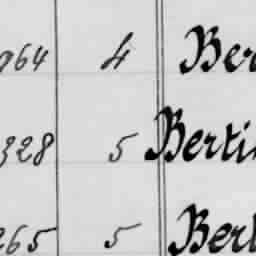 964 4 Ber
328 5 Berti
265 5 Bert